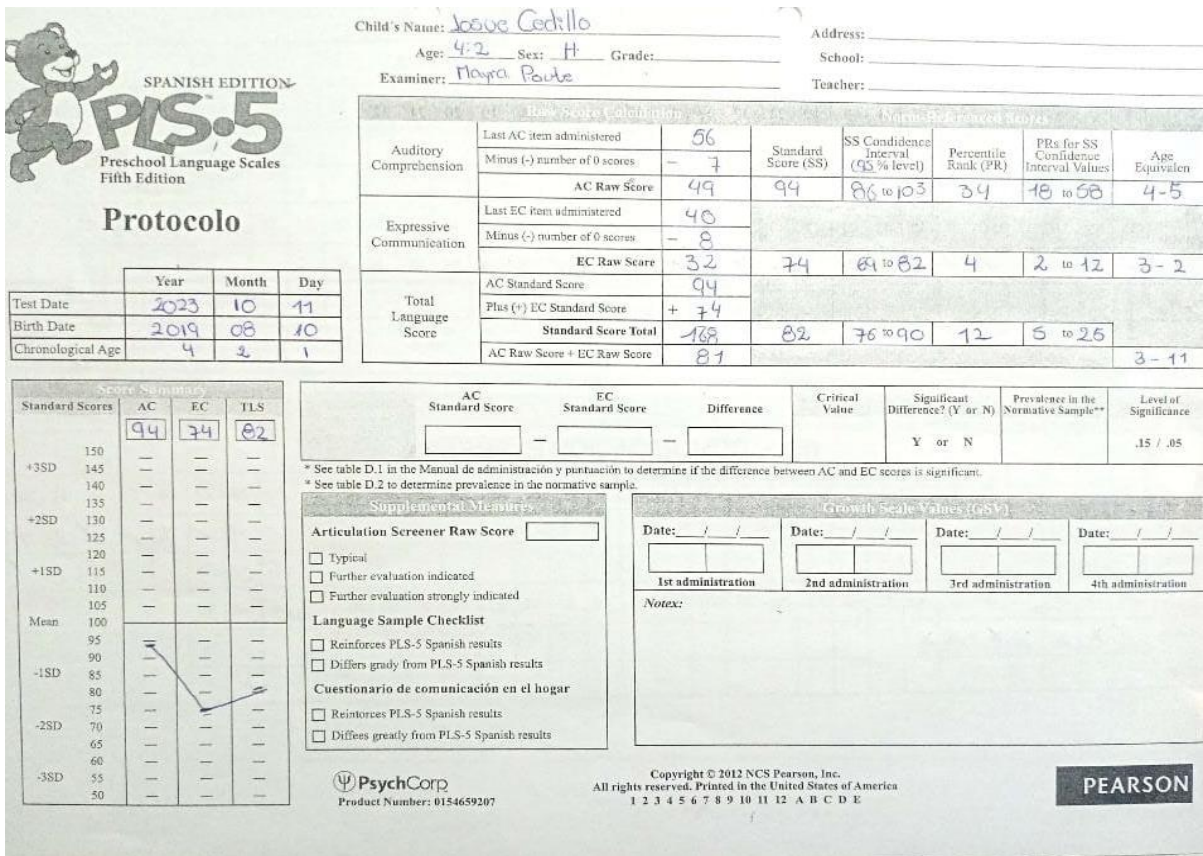 Child's Name: Josue Cedillo
Age: 4:2 Sex: H Grade:
Examiner: Mayra Paute
Address:
School:
Teacher:
SPANISH EDITION
PLS•5
Preschool Language Scales
Fifth Edition
Protocolo
Year Month Day
Test Date 2023 10 11
Birth Date 2019 08 10
Chronological Age 4 2 1
Raw Score Calculation Norm-Referenced Scores
Auditory Comprehension
Last AC item administered 56
Minus (-) number of 0 scores - 7
AC Raw Score 49
Standard Score (SS) SS Condidence Interval (95 % level) Percentile Rank (PR) PRs for SS Confidence Interval Values Age Equivalen
94 86 to 103 34 18 to 58 4-5
Expressive Communication
Last EC item administered 40
Minus (-) number of 0 scores - 8
EC Raw Score 32 74 69 to 82 4 2 to 12 3-2
Total Language Score
AC Standard Score 94
Plus (+) EC Standard Score + 74
Standard Score Total 168 82 76 to 90 12 5 to 25
AC Raw Score + EC Raw Score 81 3-11
Score Summary
Standard Scores AC EC TLS
94 74 82
150
+3SD 145
140
135
+2SD 130
125
120
+1SD 115
110
105
Mean 100
95
90
-1SD 85
80
75
-2SD 70
65
60
-3SD 55
50
AC Standard Score EC Standard Score Difference Critical Value Significant Difference? (Y or N) Prevalence in the Normative Sample** Level of Significance
Y or N .15 / .05
* See table D.1 in the Manual de administración y puntuación to determine if the difference between AC and EC scores is significant.
* See table D.2 to determine prevalence in the normative sample.
Supplemental Measures
Articulation Screener Raw Score
Typical
Further evaluation indicated
Further evaluation strongly indicated
Language Sample Checklist
Reinforces PLS-5 Spanish results
Differs grady from PLS-5 Spanish results
Cuestionario de comunicación en el hogar
Reintorces PLS-5 Spanish results
Diffees greatly from PLS-5 Spanish results
Growth Scale Values (GSV)
Date: / / Date: / / Date: / / Date: / /
1st administration 2nd administration 3rd administration 4th administration
Notex:
PsychCorp
Product Number: 0154659207
Copyright © 2012 NCS Pearson, Inc.
All rights reserved. Printed in the United States of America
1 2 3 4 5 6 7 8 9 10 11 12 A B C D E
PEARSON